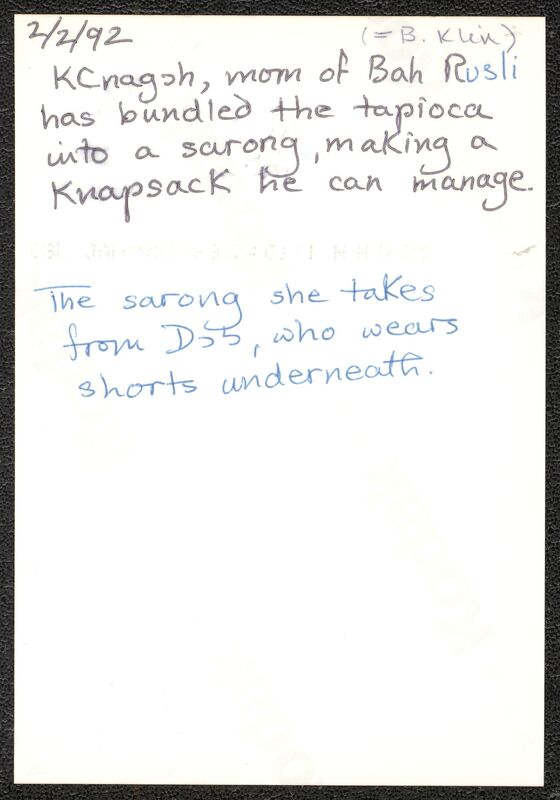 2/2/92 (= B. Klin)
KCnagɔh, mom of Bah Rusli
has bundled the tapioca
into a sarong, making a
Knapsack he can manage.
The sarong she takes
from Dɔ̃ɔ̃, who wears
shorts underneath.
Kodak